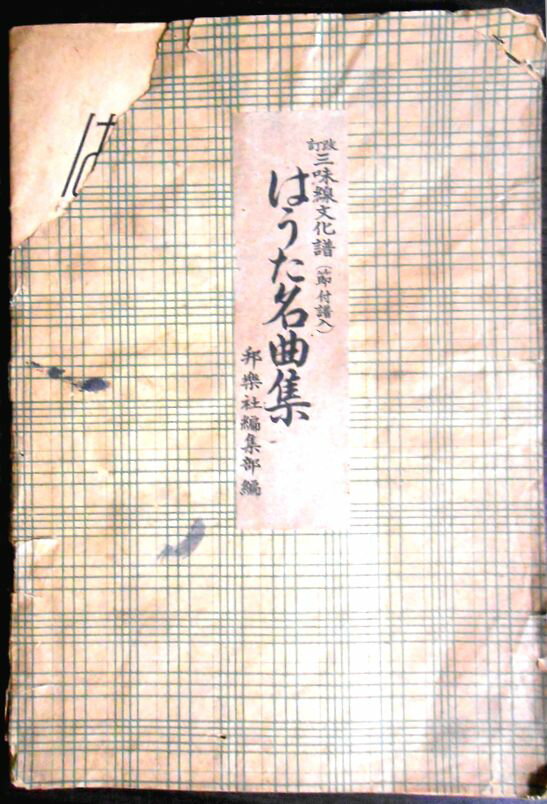 改訂三味線文化譜（節付譜入）
はうた名曲集
邦樂社編集部編
は